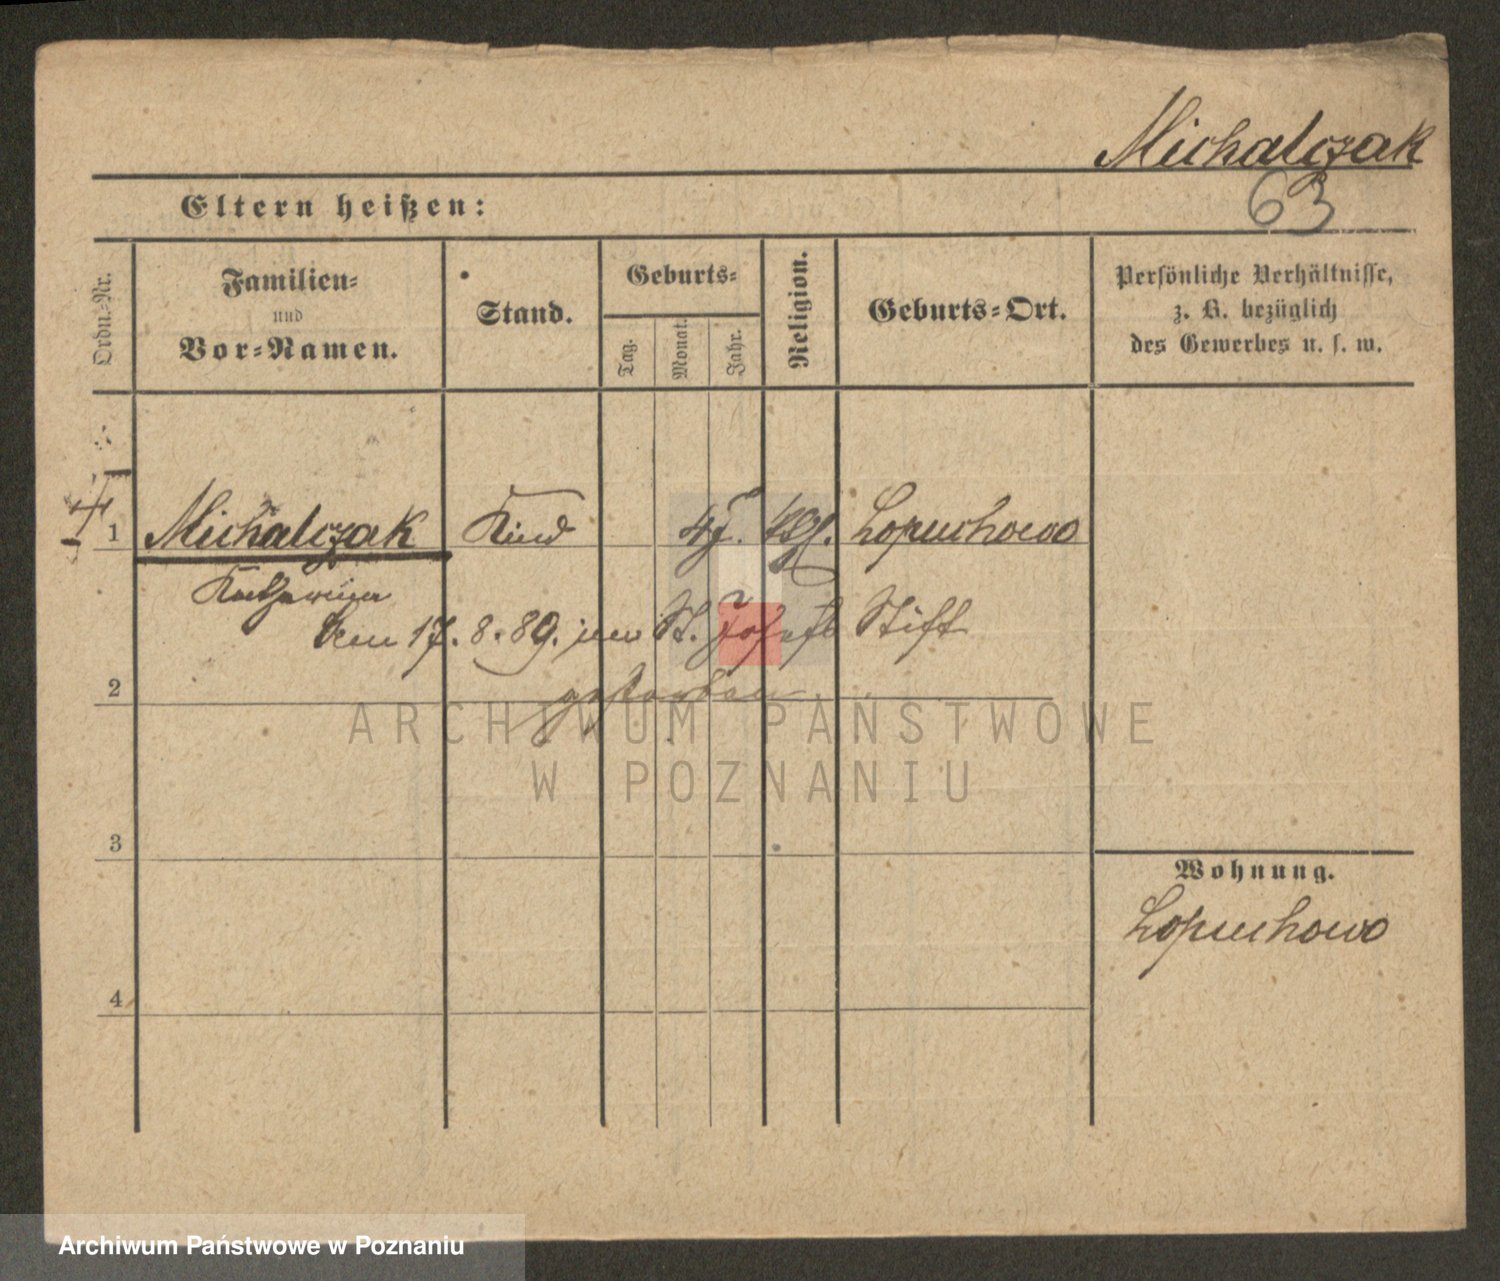 Michalczak
63
Eltern heißen:
Ordn.-Nr.
Familien-
und
Vor-Namen.
Stand.
Geburts-
Tag.
Monat.
Jahr.
Religion.
Geburts-Ort.
Persönliche Verhältnisse,
z. B. bezüglich
des Gewerbes u. s. w.
1 Michalczak Kind 4 J. kath. Lopuchowo
Katharina
den 17. 8. 89. im St. Josefs Stift
gestorben
2
3
4
Wohnung.
Lopuchowo
ARCHIWUM PAŃSTWOWE
W POZNANIU
Archiwum Państwowe w Poznaniu